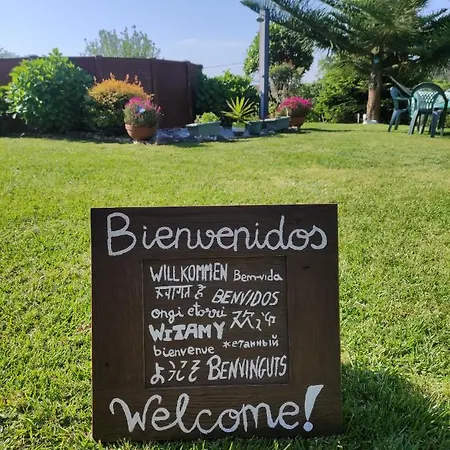 Bienvenidos
WILLKOMMEN Bem-vinda
स्वागत है BENVIDOS
ongi etorri 欢迎
WITAMY
bienvenue жетанный
ようこそ BENVINGUTS
Welcome!